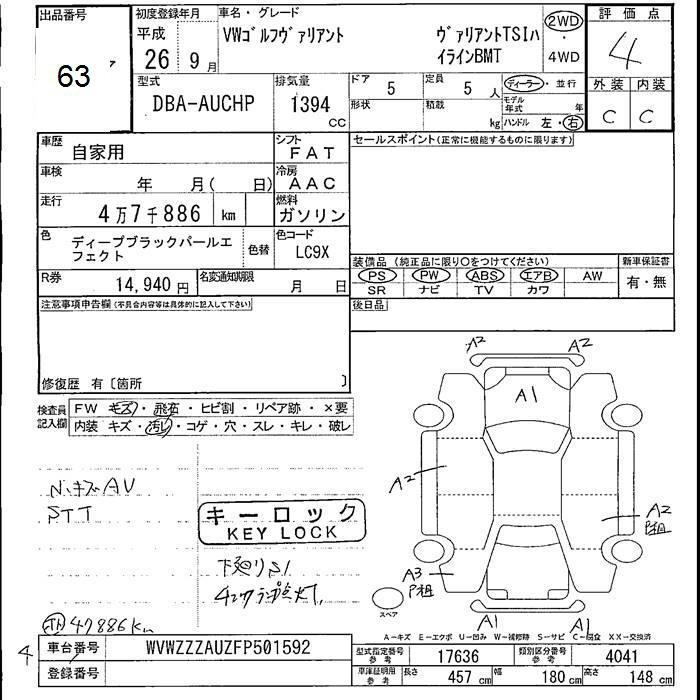 出品番号 初度登録年月 車名・グレード 評価点
平成 VWゴルフヴァリアント ヴァリアントTSIハ 2WD
63 ア 26 9月 イラインBMT ・ 4
4WD
型式 排気量 ドア 5 定員 5人 ディーラー・並行 外装 内装
DBA-AUCHP 1394 CC 形状 積載 kg モデル年式 年 C C
ハンドル 左・右
車歴 自家用 シフト FAT セールスポイント(正常に機能するものに限ります)
車検 年 月( 日) 冷房 AAC
走行 4万7千886 km 燃料 ガソリン
色 ディープブラックパールエフェクト 色替 色コード LC9X
装備品(純正品に限り○をつけてください) 新車保証書
R券 14,940円 名変通知期限 月 日 PS PW ABS エアB AW 有・無
SR ナビ TV カワ
注意事項申告欄(不具合内容等は具体的に記入して下さい) 後日品
修復歴 有〔箇所 〕
検査員記入欄 FW キズ・飛石・ヒビ割・リペア跡・×要
内装 キズ・汚れ・コゲ・穴・スレ・キレ・破レ
A2 A2
A1
N.キズAV
STT
A2
A2
キーロック
KEY LOCK
下廻りS1
A3
P祖
スペア
A1 A1
47886km
A-キズ E-エクボ U-凹み W-補修跡 S-サビ C-腐食 XX-交換済
4 車台番号 WVWZZZAUZFP501592
登録番号
型式指定番号 参考 17636 類別区分番号 参考 4041
車庫証明用 参考 長さ 457cm 幅 180cm 高さ 148cm